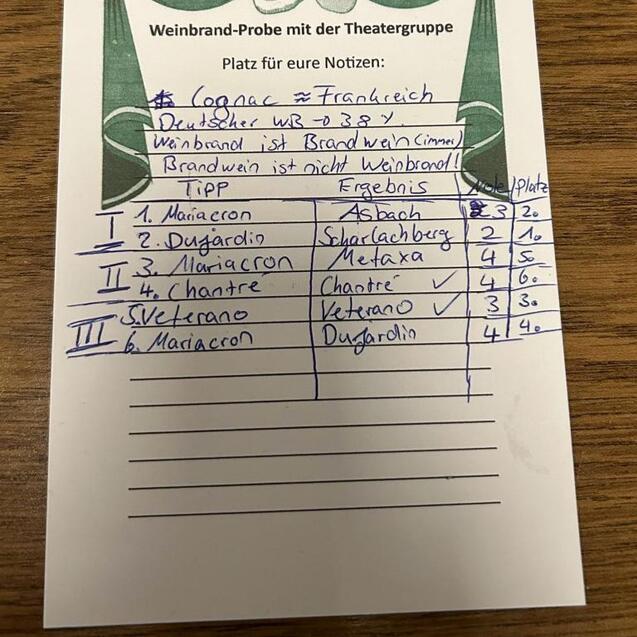 Weinbrand-Probe mit der Theatergruppe
Platz für eure Notizen:
Cognac ≈ Frankreich
Deutscher WB → 38 %
Weinbrand ist Brandwein (immer)
Brandwein ist nicht Weinbrand!
Tipp Ergebnis Note Platz
I 1. Mariacron Asbach 3 2.
2. Dujardin Scharlachberg 2 1.
II 3. Mariacron Metaxa 4 5.
4. Chantré Chantré ✓ 4 6.
III 5. Veterano Veterano ✓ 3 3.
6. Mariacron Dujardin 4 4.